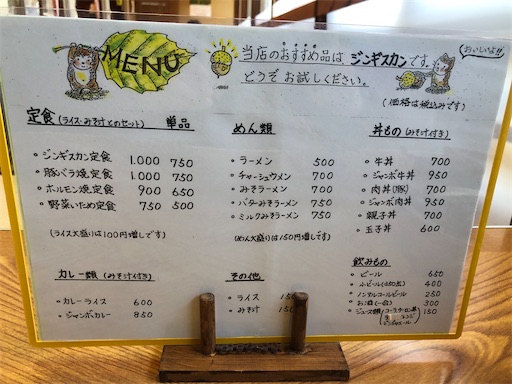 MENU
当店のおすすめ品は ジンギスカンです。
どうぞ お試しください。
おいしいよ!!
(価格は税込みです)
定食 (ライス・みそ汁とのセット) 単品
・ジンギスカン定食 1.000 750
・豚バラ焼定食 1.000 750
・ホルモン焼定食 900 650
・野菜いため定食 750 500
(ライス大盛りは100円増しです)
めん類
・ラーメン 500
・チャーシューメン 700
・みそラーメン 700
・バターみそラーメン 750
・ミルクみそラーメン 750
(めん大盛りは150円増しです)
丼もの (みそ汁付き)
・牛丼 700
・ジャンボ牛丼 950
・肉丼(豚) 700
・ジャンボ肉丼 950
・親子丼 700
・玉子丼 600
カレー類 (みそ汁付き)
・カレーライス 600
・ジャンボカレー 850
その他
・ライス 150
・みそ汁 150
飲みもの
・ビール 650
・小ビール 400
・ノンアルコールビール 250
・お酒(一合) 300
・ジュース類 150